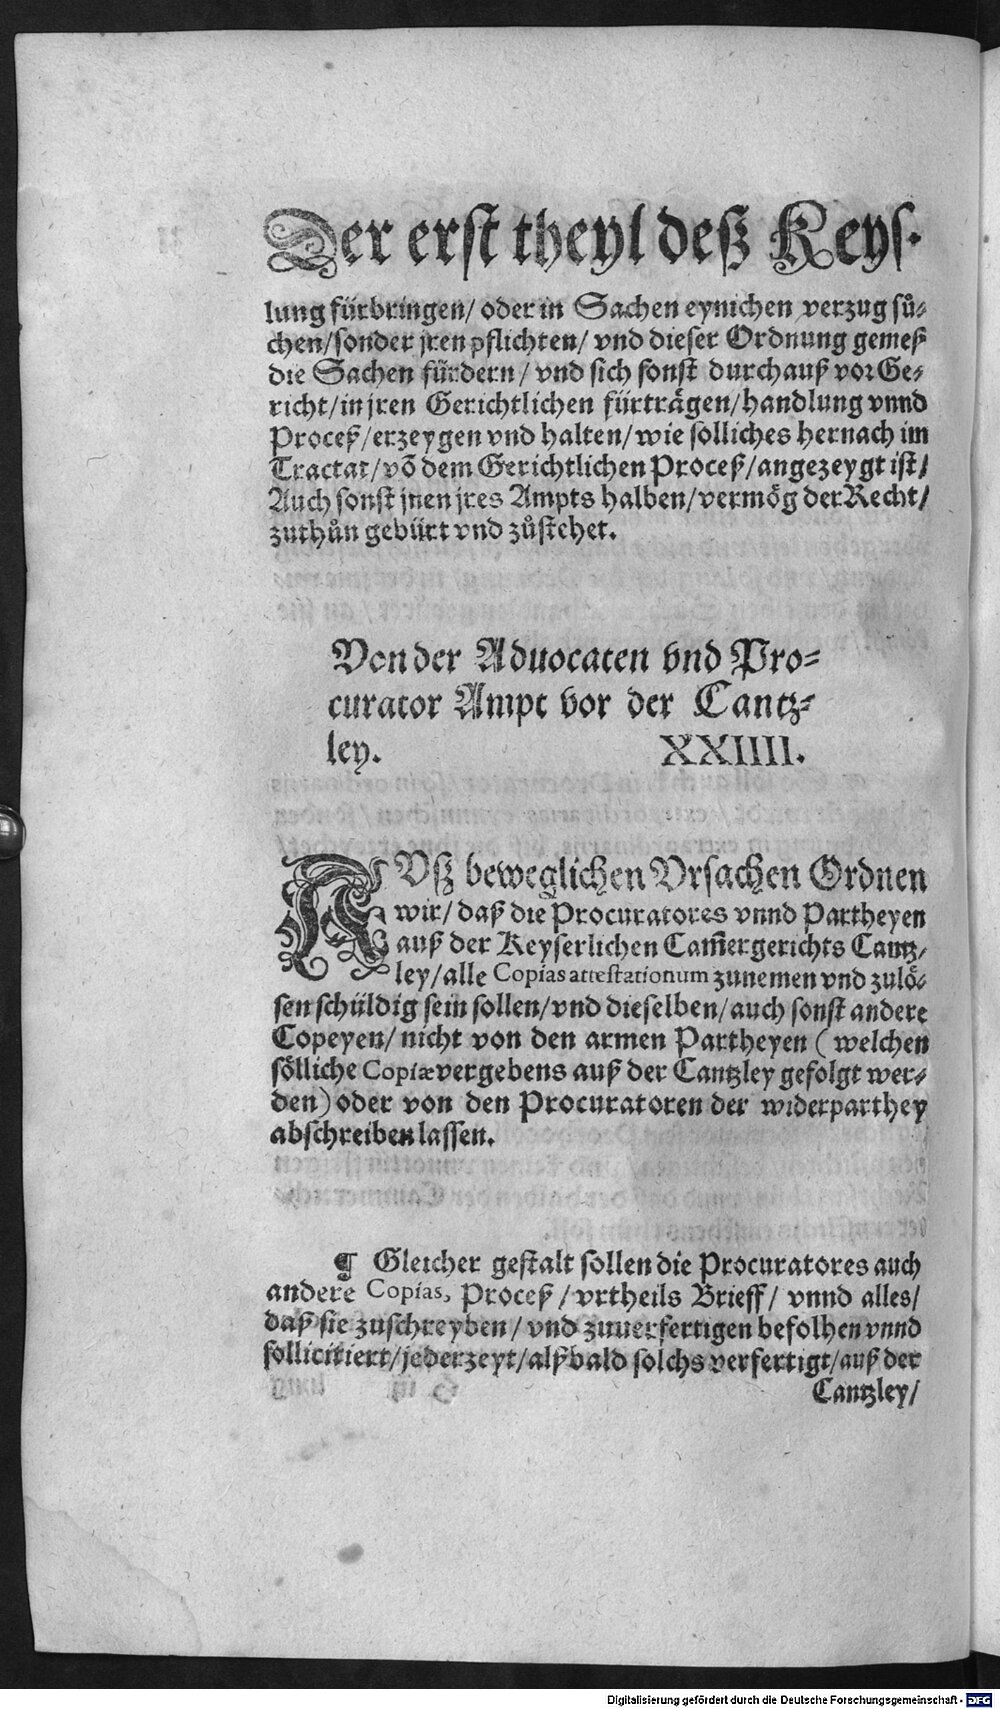 Der erst theyl deß Keys.
lung fürbringen/ oder in Sachen eynichen verzug sůchen/
chen/sonder jren pflichten/ vnd dieser Ordnung gemeß
die Sachen fürdern/ vnd sich sonst durchauß vor Ge-
richt/in jren Gerichtlichen fürträgen/handlung vnnd
Proceß/erzeygen vnd halten/wie solliches hernach im
Tractat/võ dem Gerichtlichen Proceß/angezeygt ist/
Auch sonst jnen jres Ampts halben/vermög der Recht/
zuthůn gebürt vnd zůstehet.
Von der Aduocaten vnd Pro-
curator Ampt vor der Cantz-
ley. XXIIII.
AVß beweglichen Vrsachen Ordnen
wir/ daß die Procuratores vnnd Partheyen
auß der Keyserlichen Cam̃ergerichts Cantz-
ley/alle Copias attestationum zunemen vnd zulö-
sen schüldig sein sollen/vnd dieselben/auch sonst andere
Copeyen/ nicht von den armen Partheyen (welchen
sölliche Copiæ vergebens auß der Cantzley gefolgt wer-
den) oder von den Procuratoren der widerparthey
abschreiben lassen.
¶ Gleicher gestalt sollen die Procuratores auch
andere Copias, Proceß/vrtheils Brieff/ vnnd alles/
daß sie zuschreyben/ vnd zuuerfertigen befolhen vnnd
sollicitiert/jederzeyt/alßbald solchs verfertigt/auß der
Cantzley/
Digitalisierung gefördert durch die Deutsche Forschungsgemeinschaft - DFG